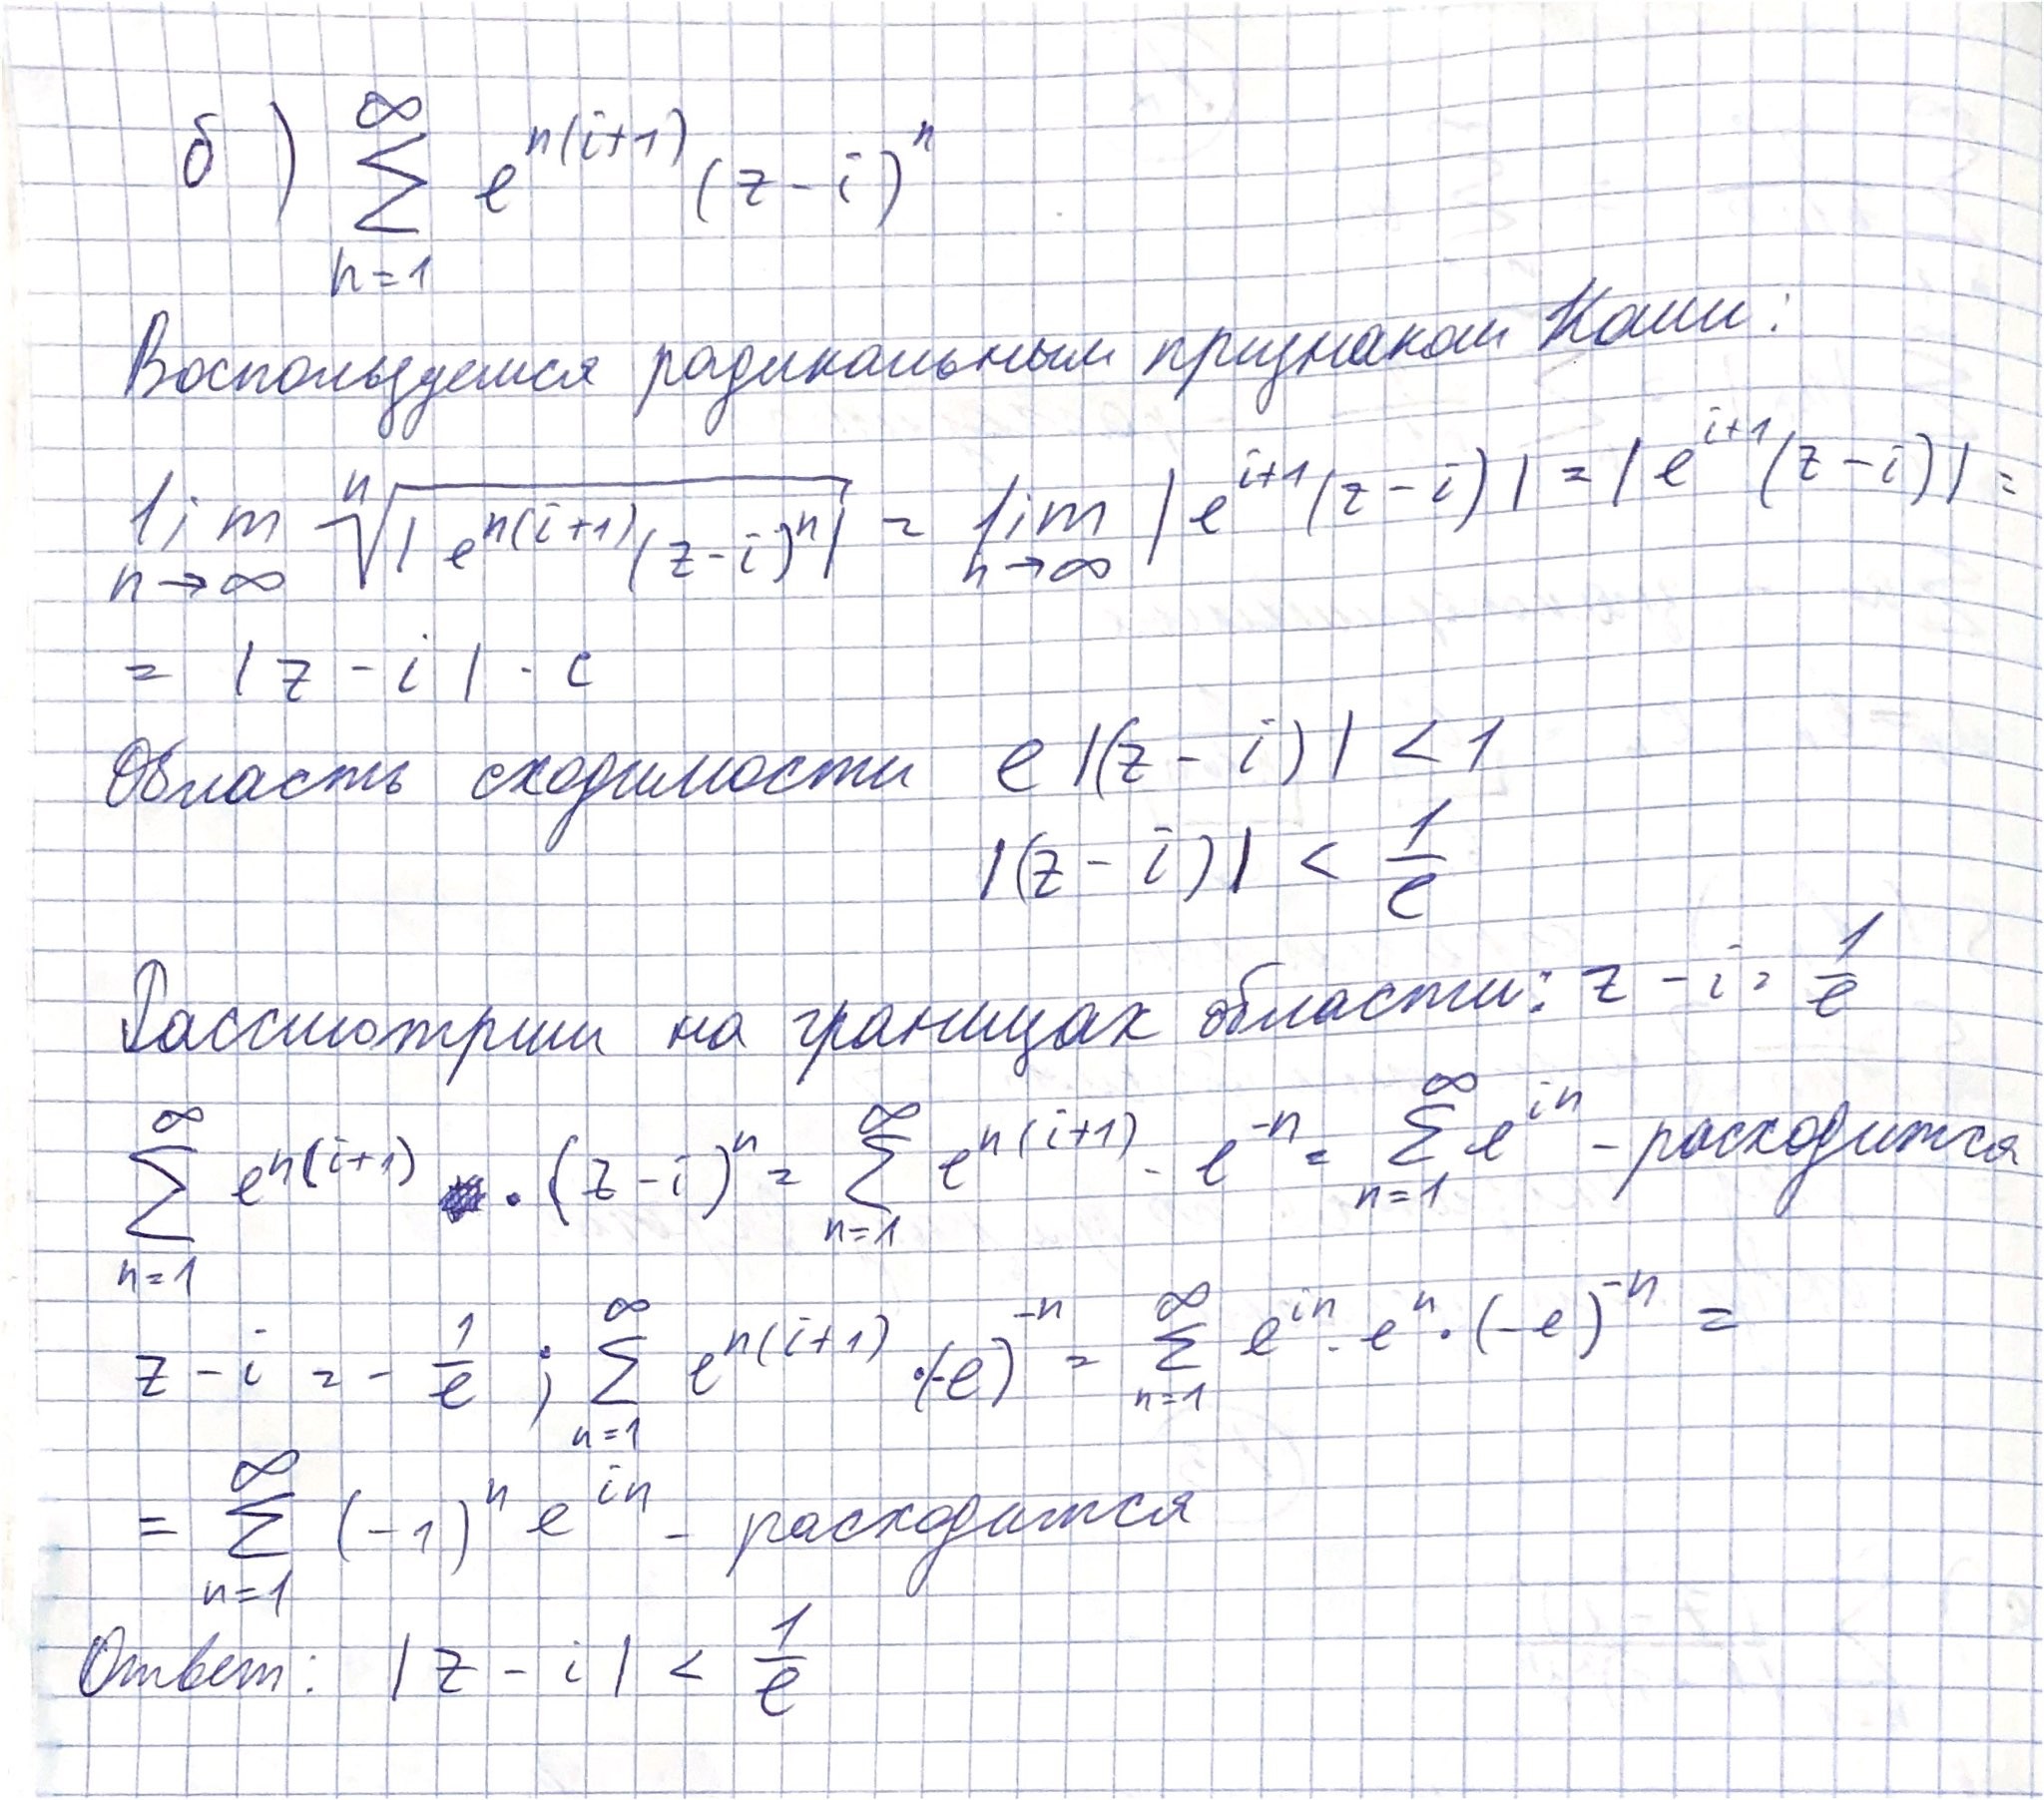 б) ∑_{n=1}^{∞} e^{n(i+1)} (z-i)^n
Воспользуемся радикальным признаком Коши:
lim_{n→∞} ⁿ√|e^{n(i+1)}(z-i)^n| = lim_{n→∞} |e^{i+1}(z-i)| = |e^{i+1}(z-i)| =
= |z-i| · e
Область сходимости e|(z-i)| < 1
|(z-i)| < 1/e
Рассмотрим на границах области: z-i = 1/e
∑_{n=1}^{∞} e^{n(i+1)} · (z-i)^n = ∑_{n=1}^{∞} e^{n(i+1)} · e^{-n} = ∑_{n=1}^{∞} e^{in} - расходится
z-i = -1/e ; ∑_{n=1}^{∞} e^{n(i+1)} · (-e)^{-n} = ∑_{n=1}^{∞} e^{in} · e^n · (-e)^{-n} =
= ∑_{n=1}^{∞} (-1)^n e^{in} - расходится
Ответ: |z-i| < 1/e